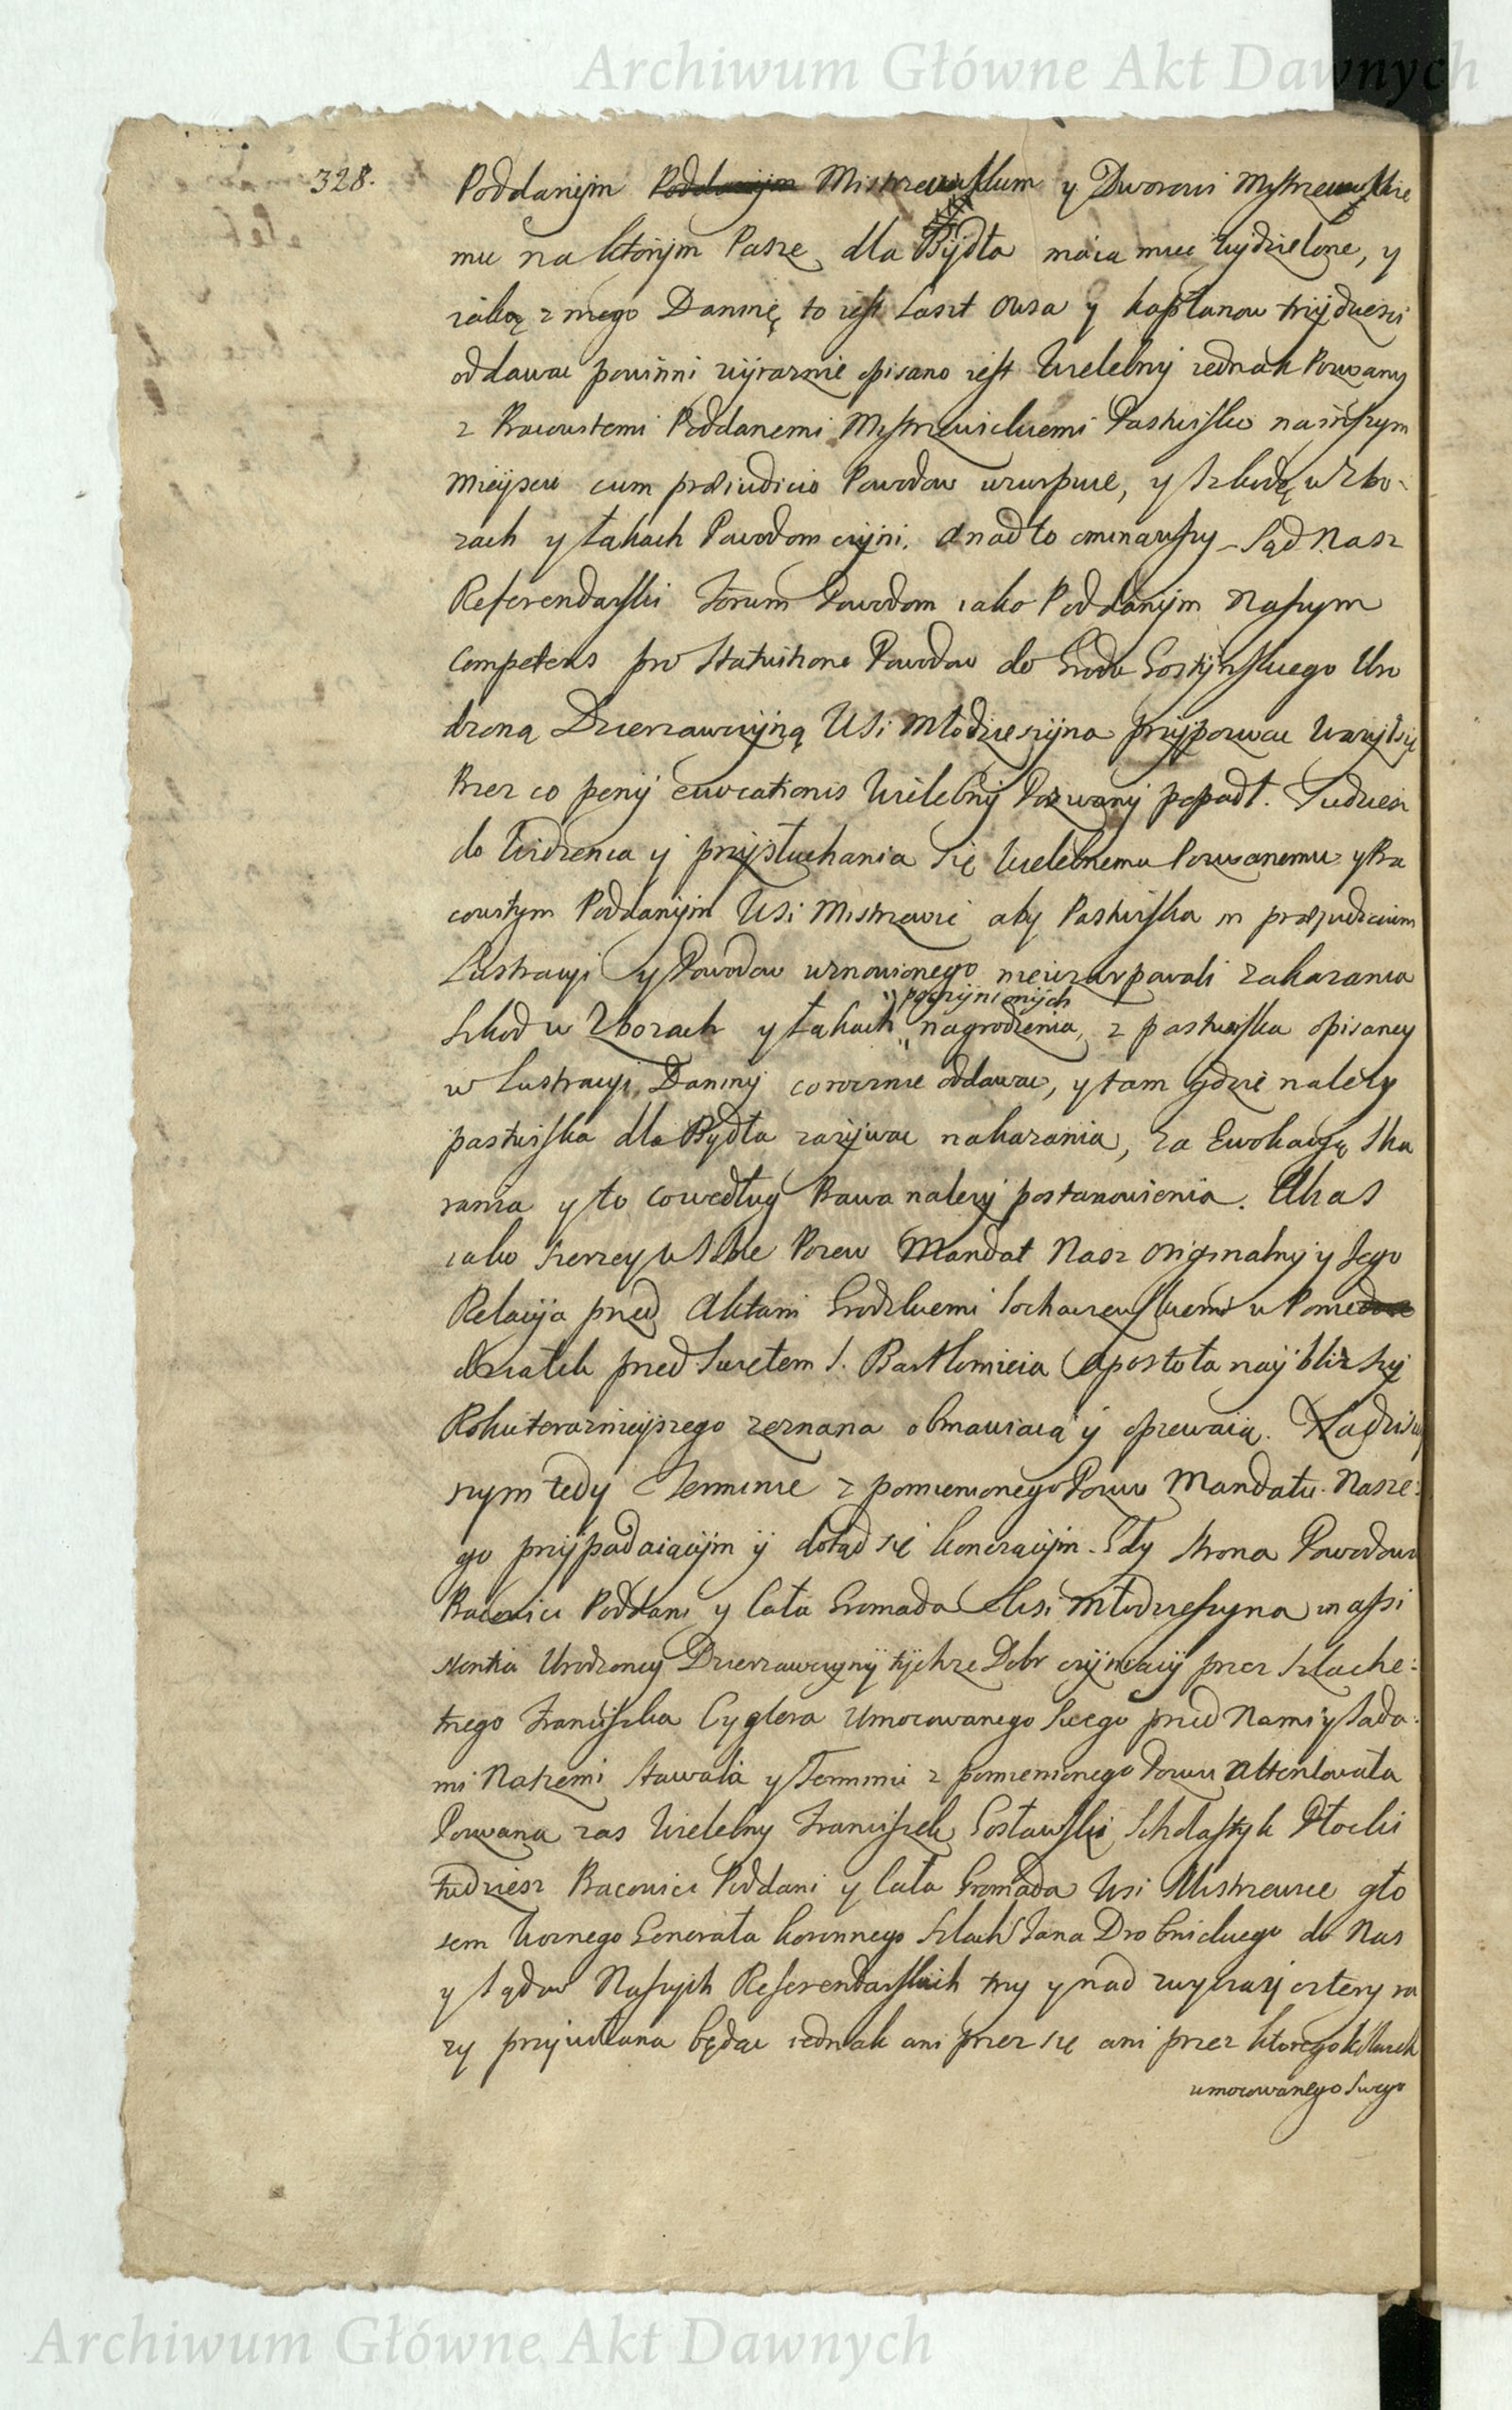 Archiwum Główne Akt Dawnych
328.
Poddanÿm Poddanÿm Mistrzewskim y Dworowi Mystrzewskie
mu na ktorÿm Pasze dla Bÿdła maia mieć wydzielone, y
iakoą z niego Daninę to iest Łaszt Owsa y kapłanow trzÿdziesci
oddawac powinni wÿraznie opisano iest Wielebnÿ iednak Pozwany
z Pracowitemi Poddanemi Mystrzewickiemi Pastwisko na inszym
mieÿscu cum præiudicio Powodow uzurpuie, y szkodę w Zbo-
zach y Łakach Powodom czÿni. A nadto ominąwszy Sąd Nasz
Referendarski Forum Powodom iako Poddanÿm Naszym
Competens pro Statuitione Powodow do Grodu Gostÿnskiego Uro
dzoną Dzierzawczÿną Wsi Młodzieszÿna przÿpozwac wazÿł się
Przez co penÿ evocationis Wielebnÿ Pozwanÿ popadł. Tudziesz
do Widzenia ÿ przÿsłuchania się Wielebnemu Pozwanemu y Pra
cowitym Poddanÿm Wsi Mistrzewic aby Pastwiska in præjudicium
Lustracyi y Powodow wznowionego nieuzurpowali zakazania
poczÿnionÿch
Szkod w Zbozach y Łakach " nagrodzenia, z pastwiska opisaney
w Lustracyi Daninÿ corocznie oddawac, y tam gdzie nalezy
pastwiska dla Bydła zazÿwac nakazania, za Ewokacyę ska
rania y to co według Prawa nalezÿ postanowienia. Układ
iako szerzey w sobie Pozew Mandat Nasz Orÿginalnÿ ÿ Jego
Relacÿja przed Aktami Grodzkiemi Sochaczewskiemi w Ponie
działek przed Swiętem S. Bartłomieia Apostoła naÿblizszÿ
Roku teraznieÿszego zeznana obmawiaią ÿ opiewaią. Na dzisiey
szym tedy Terminie z pomienionego Pozwu Mandatu Nasze:
go przÿpadaiącÿm ÿ dotąd się konczącÿm. Gdy Strona Powodowa
Pracowici Poddani y Cała Gromada Wsi Młodzieszyna in assi
stentia Urodzoney Dzierzawczynÿ tÿchze Dobr czÿniącÿ przez Szlache:
tnego Franciszka Cyglera Umocowanego Swego przed Nami y Sąda:
mi Naszemi stawała y Terminu z pomienionego Pozwu attentowała
Pozwana zas Wielebny Franciszek Gostawski Scholastyk Płocki
tudziesz Pracowici Poddani y Cała Gromada Wsi Mistrzewice gło
sem Woznego Generała koronnego Szlach Jana Drobnickiego do Nas
y Sądow Naszÿch Referendarskich trzy y nad zwyczaÿ cztery ra
zy przÿwołana będąc iednak ani przez się ani przez ktoregokolwiek
umocowanego Swego
Archiwum Główne Akt Dawnych